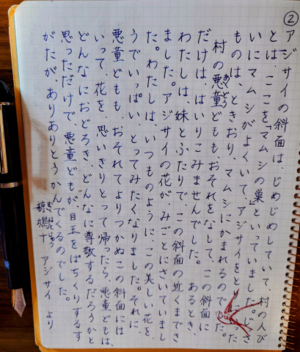 ②
アジサイの斜面は、じめじめしていて、村の人び
とは、ここを「マムシの巣」といっていました。
いにマムシがよくいて、アジサイをとり
ものは、ときおり、マムシにかまれるので
村の悪童どももおそれをなし、この
だけは、はいりこみませんでした。あるとき、
わたしは、妹とふたりで、この斜面の近くまでき
ました。アジサイの花が、みごとにさいていまし
た。わたしは、いつものように、この美しい花を
うでいっぱい、とってみたくなりました。それに、
悪童どもも、おそれてよりつかぬこの斜面には
いって、花を、思いきりとって帰ったら、悪童どもは、
どんなにおどろき、どんなに尊敬するだろうかと
思っただけで、悪童どもが目玉をぱちくりするす
がたがありありとうかんでくるのでした。
アジサイ より